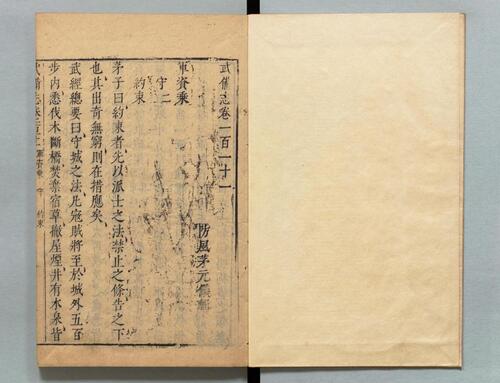 武備志卷一百一十一
防風茅元儀輯
軍資乘
守二
約束
茅子曰約束者先以派士之法禁止之條告之下
也其出奇無窮則在措應矣
武經總要曰守城之法凡寇賊將至於城外五百
步內悉伐木斷橋焚棄宿草撤屋煙井有水泉皆
武備志卷一百十一 軍資乘 守 約束